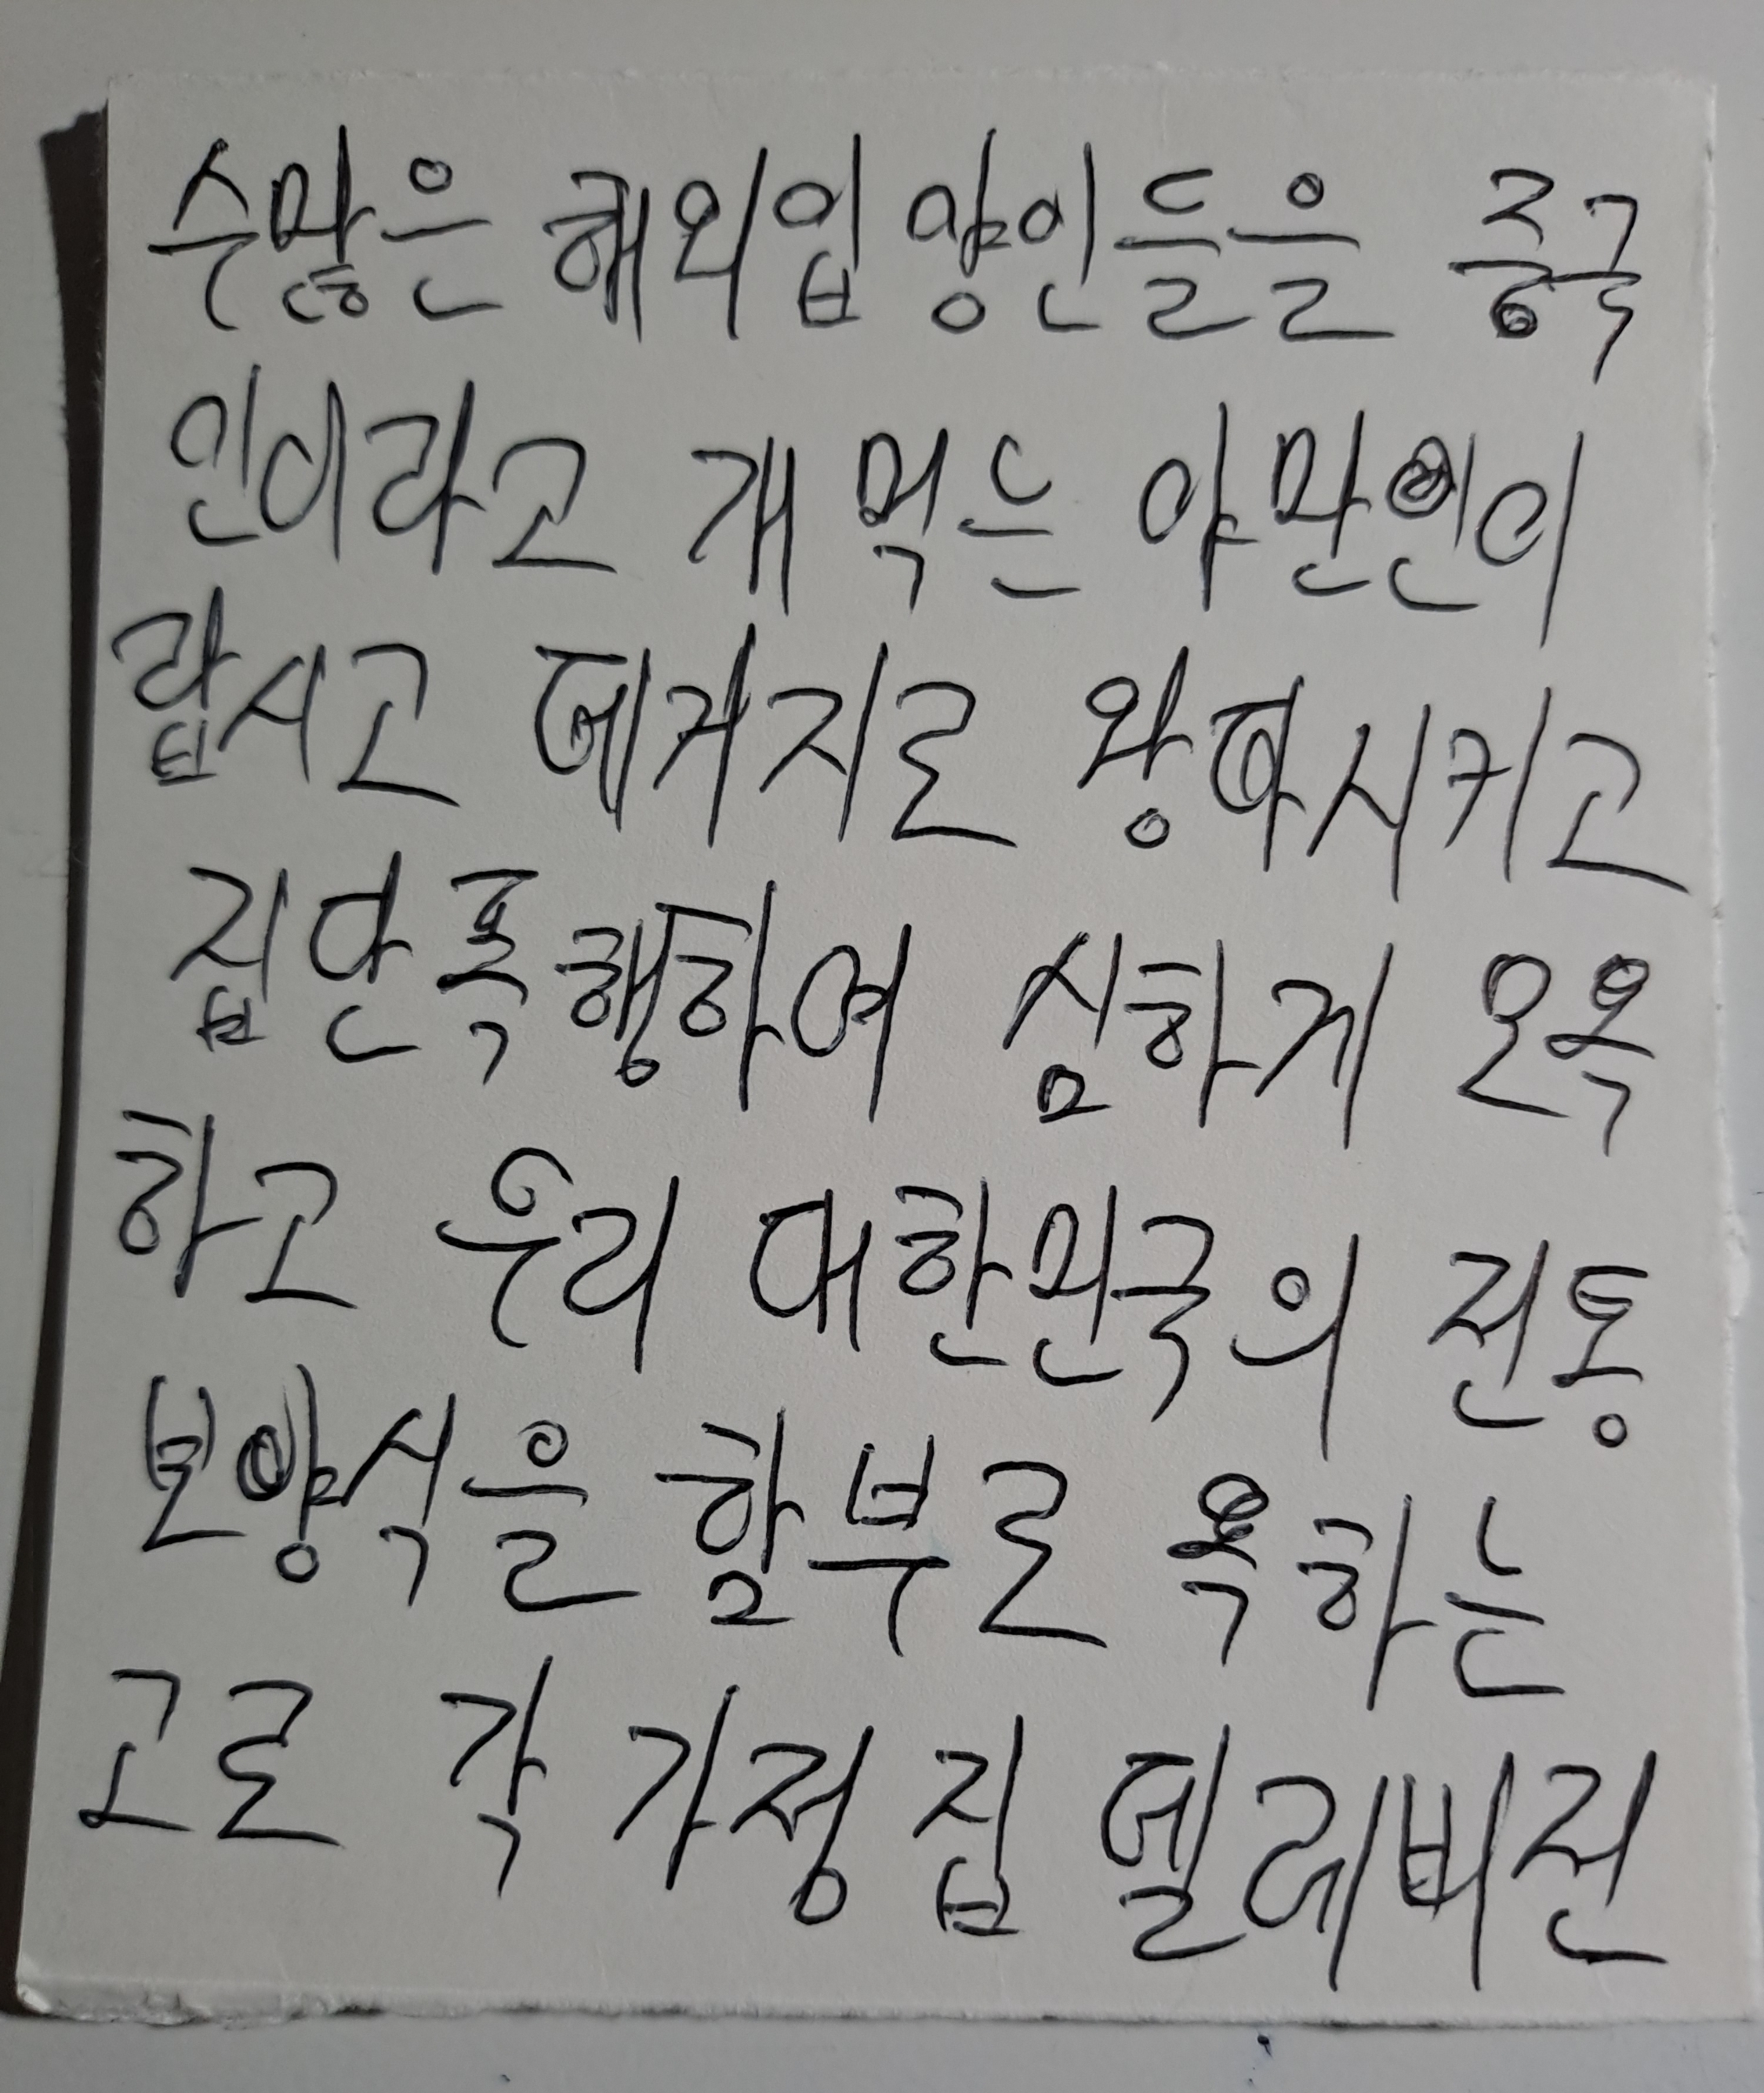 수많은 해외입양인들을 중국
인이라고 개 먹는 야만인이
랍시고 떼거지로 왕따시키고
집단폭행하여 심하게 모욕
하고 우리 대한민국의 전통
보양식을 함부로 욕하는
고로 각 가정집 텔레비전